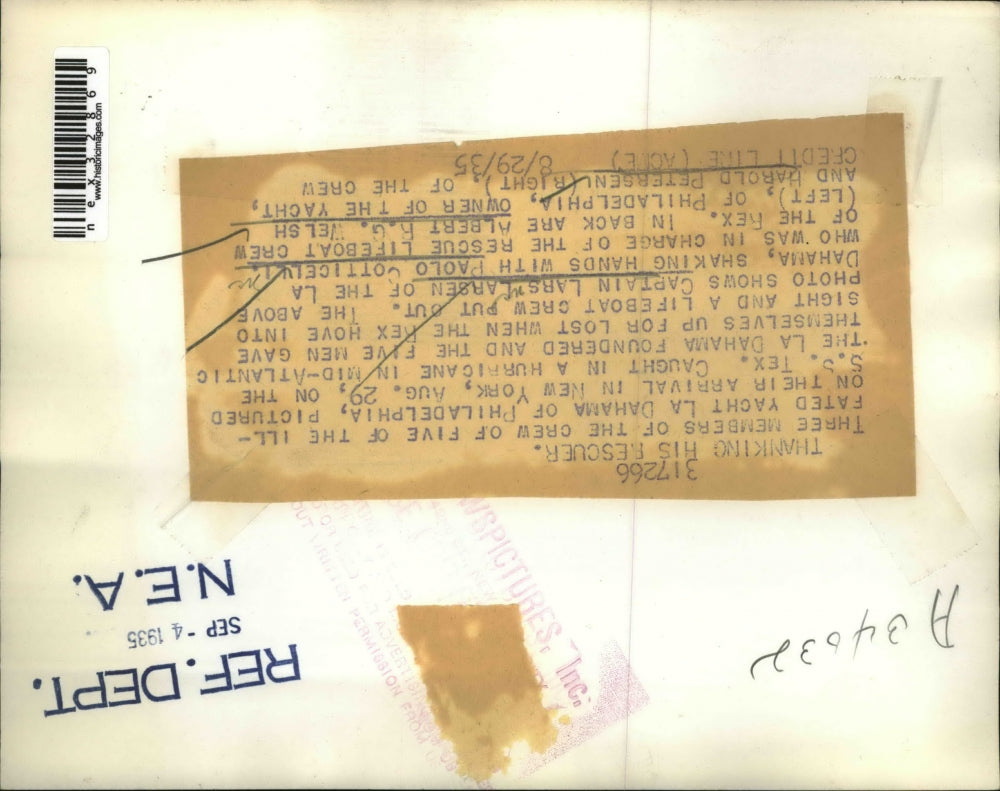 317266
THANKING HIS RESCUER.
THREE MEMBERS OF THE CREW OF FIVE OF THE ILL-
FATED YACHT LA DAHAMA OF PHILADELPHIA, PICTURED
ON THEIR ARRIVAL IN NEW YORK, AUG. 29, ON THE
S.S. TEX. CAUGHT IN A HURRICANE IN MID-ATLANTIC
THE LA DAHAMA FOUNDERED AND THE FIVE MEN GAVE
THEMSELVES UP FOR LOST WHEN THE REX HOVE INTO
SIGHT AND A LIFEBOAT CREW PUT OUT. THE ABOVE
PHOTO SHOWS CAPTAIN LARS LARSEN OF THE LA
DAHAMA, SHAKING HANDS WITH PAOLO
WHO WAS IN CHARGE OF THE RESCUE LIFEBOAT CREW
OF THE REX. IN BACK ARE ALBERT R.G. WELSH
(LEFT), OF PHILADELPHIA, OWNER OF THE YACHT,
AND HAROLD PETERSEN (RIGHT), OF THE CREW
CREDIT LINE (ACME) 8/29/35
REF. DEPT.
SEP - 4 1935
N.E.A.
A 34632
WSPICTURES, Inc.
OUT WRITTEN PERMISSION FROM
nex328869
www.historicimages.com